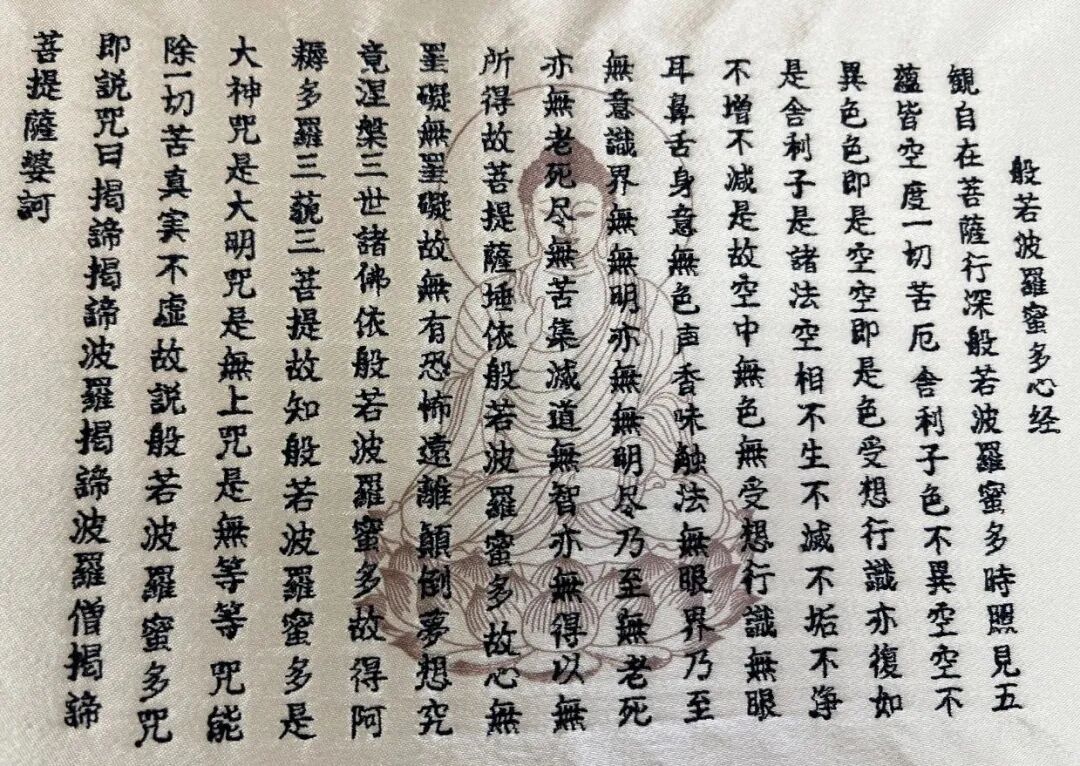 般若波羅蜜多心经
観自在菩薩行深般若波羅蜜多時照見五
蘊皆空度一切苦厄舎利子色不異空空不
異色色即是空空即是色受想行識亦復如
是舎利子是諸法空相不生不滅不垢不浄
不增不減是故空中無色無受想行識無眼
耳鼻舌身意無色声香味触法無眼界乃至
無意識界無無明亦無無明尽乃至無老死
亦無老死尽無苦集滅道無智亦無得以無
所得故菩提薩埵依般若波羅蜜多故心無
罣礙無罣礙故無有恐怖遠離顛倒夢想究
竟涅槃三世諸佛依般若波羅蜜多故得阿
耨多羅三藐三菩提故知般若波羅蜜多是
大神咒是大明咒是無上咒是無等等咒能
除一切苦真実不虚故説般若波羅蜜多咒
即説咒曰揭諦揭諦波羅揭諦波羅僧揭諦
菩提薩婆訶